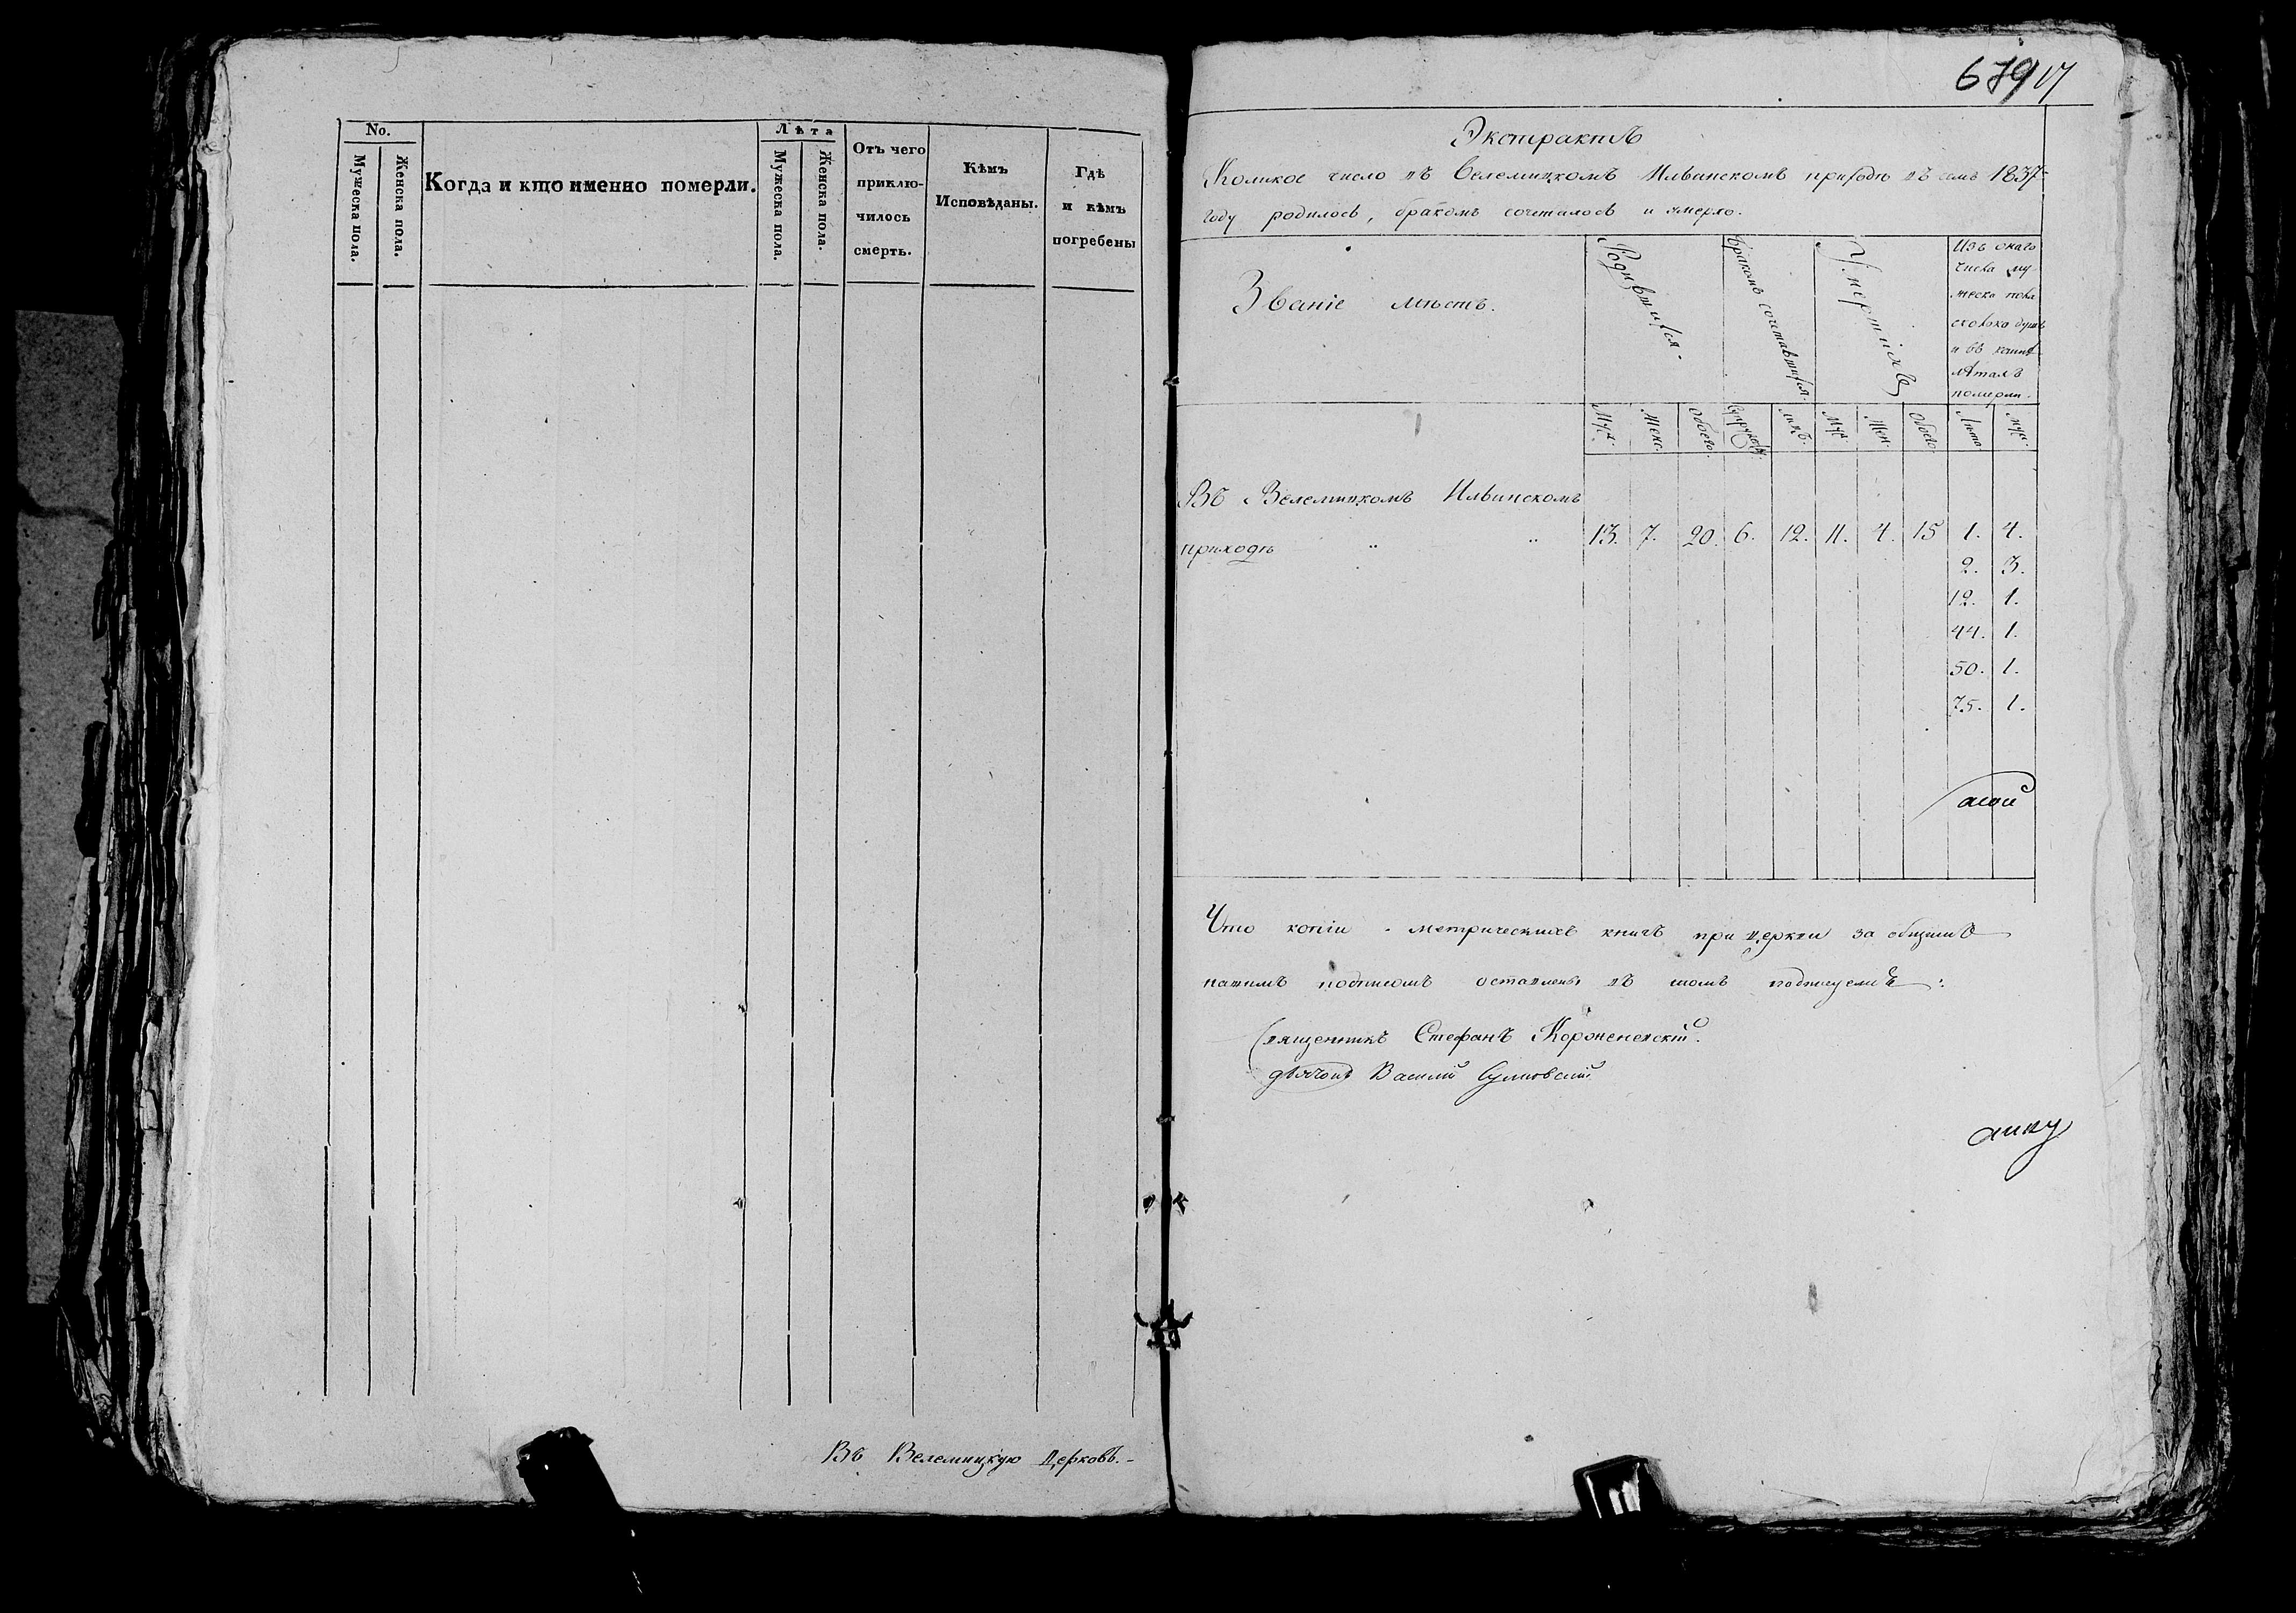 No.
Мужеска пола.
Женска пола.
Когда и кто именно померли.
Лѣта
Мужеска пола.
Женска пола.
Отъ чего
приклю-
чилось
смерть.
Кѣмъ
Исповѣданы.
Гдѣ
и кѣмъ
погребены
Въ Велемицкую Церковь.-
679
Экстрактъ
Коликое число въ Велемицкомъ Ильинскомъ приходѣ въ семъ 1837
году родилось, бракомъ сочеталось и умерло.
Званіе мѣстъ.
Родившихся.
Бракомъ сочетавшихся.
Умершихъ
Изъ онаго
числа му-
жеска пола
сколько душъ
и въ коихъ
лѣтахъ
померли.
Муж.
Женс.
Обоего.
Лицъ.
Муж
Жен.
Обоего
Лѣта
муж.
Въ Велемицкомъ Ильинскомъ
приходѣ " " 13. 7. 20. 6. 12. 11. 4. 15 1. 4.
2. 3.
12. 1.
44. 1.
50. 1.
75. 1.
Что копіи метрическихъ книгъ при церкви за общимъ
нашимъ подписомъ оставлены въ томъ подписуемся:
Священникъ Стефанъ Корженевскій.
дьячокъ Василій